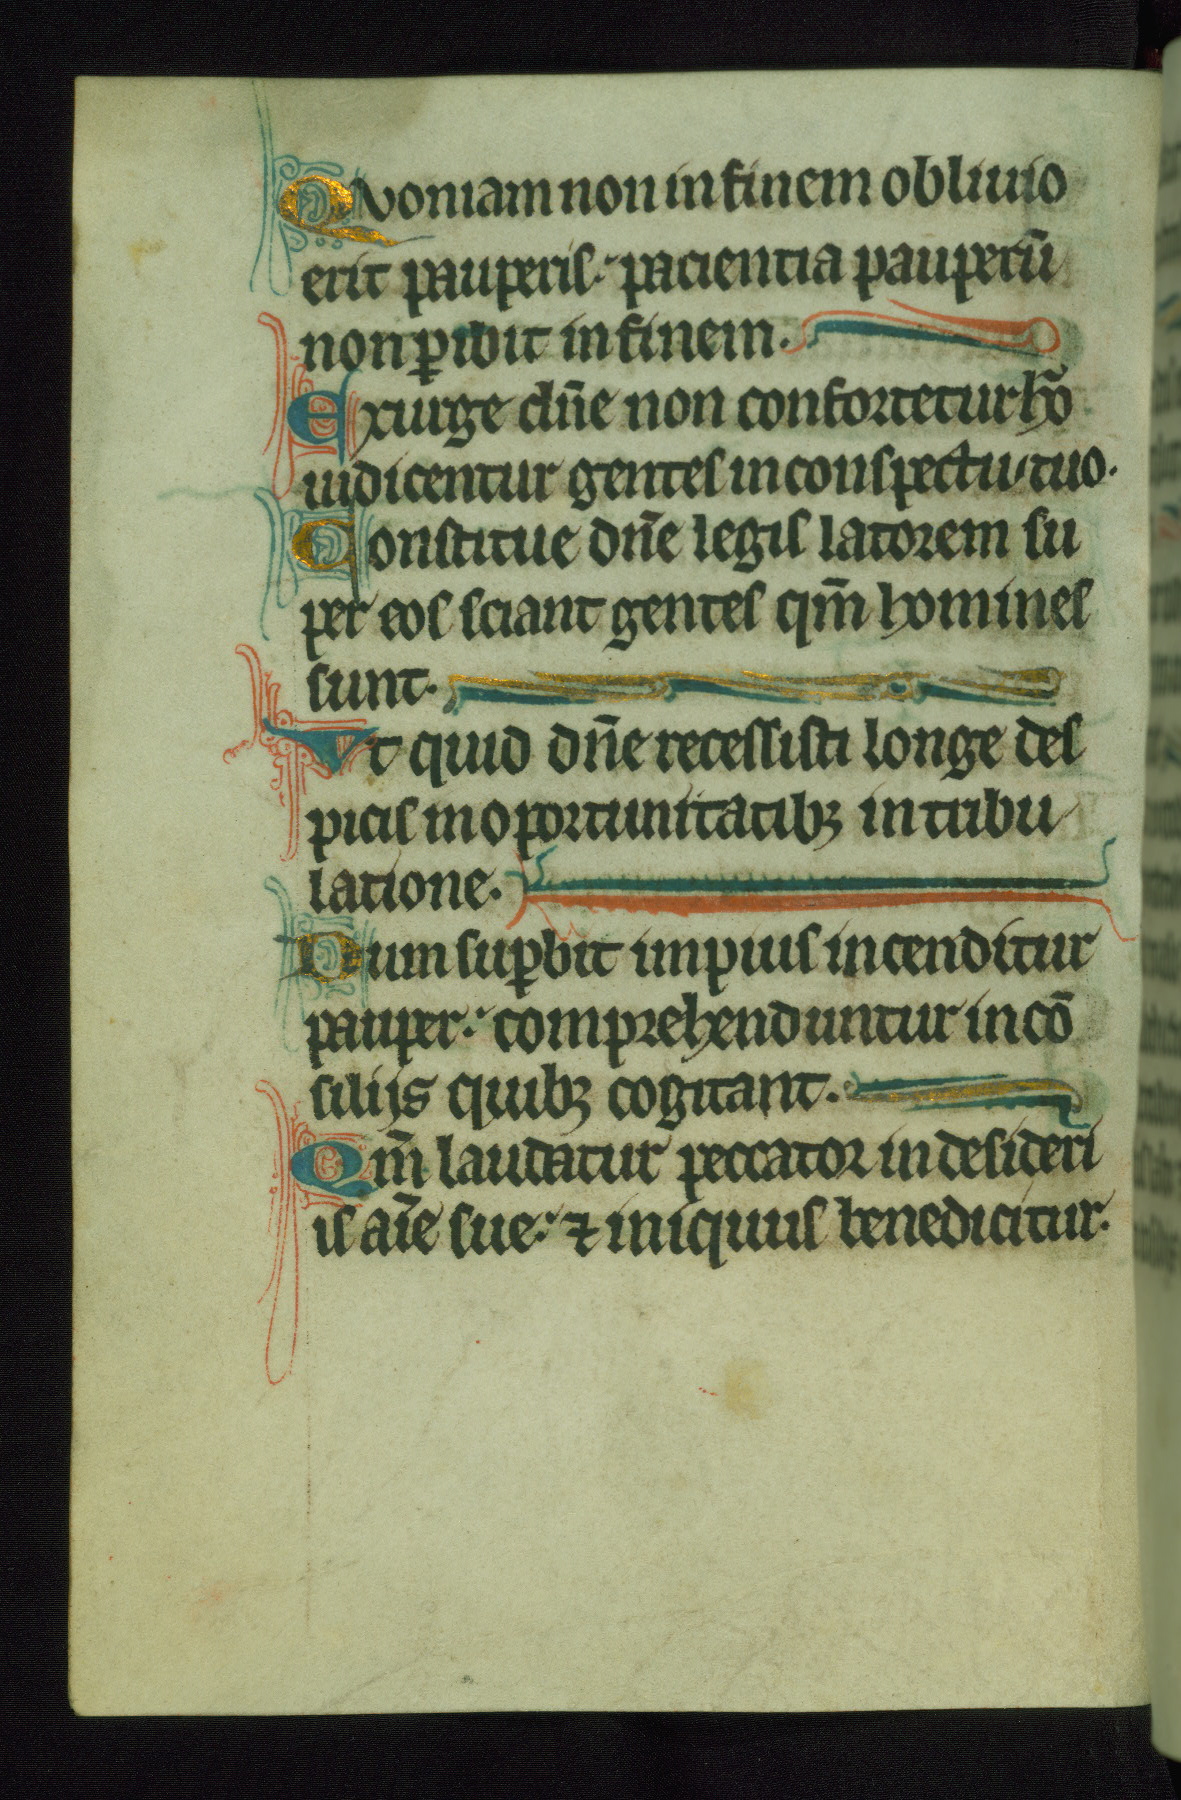 Quoniam non in finem obliuio
erit pauperis: pacientia pauperū
non ꝑibit in finem.
Exurge dn̄e non confortetur hō
iudicentur gentes in conspectu tuo.
Constitue dn̄e legis latorem su
per eos sciant gentes qm̄ homines
sunt.
Vt quid dn̄e recessisti longe des
picis in oportunitatibꝫ in tribu
latione.
Dum suꝑbit impius incenditur
pauper: comprehenduntur in cō
silijs quibꝫ cogitant.
Qm̄ laudatur peccator in desideri
is aīe sue: ⁊ iniquus benedicitur.